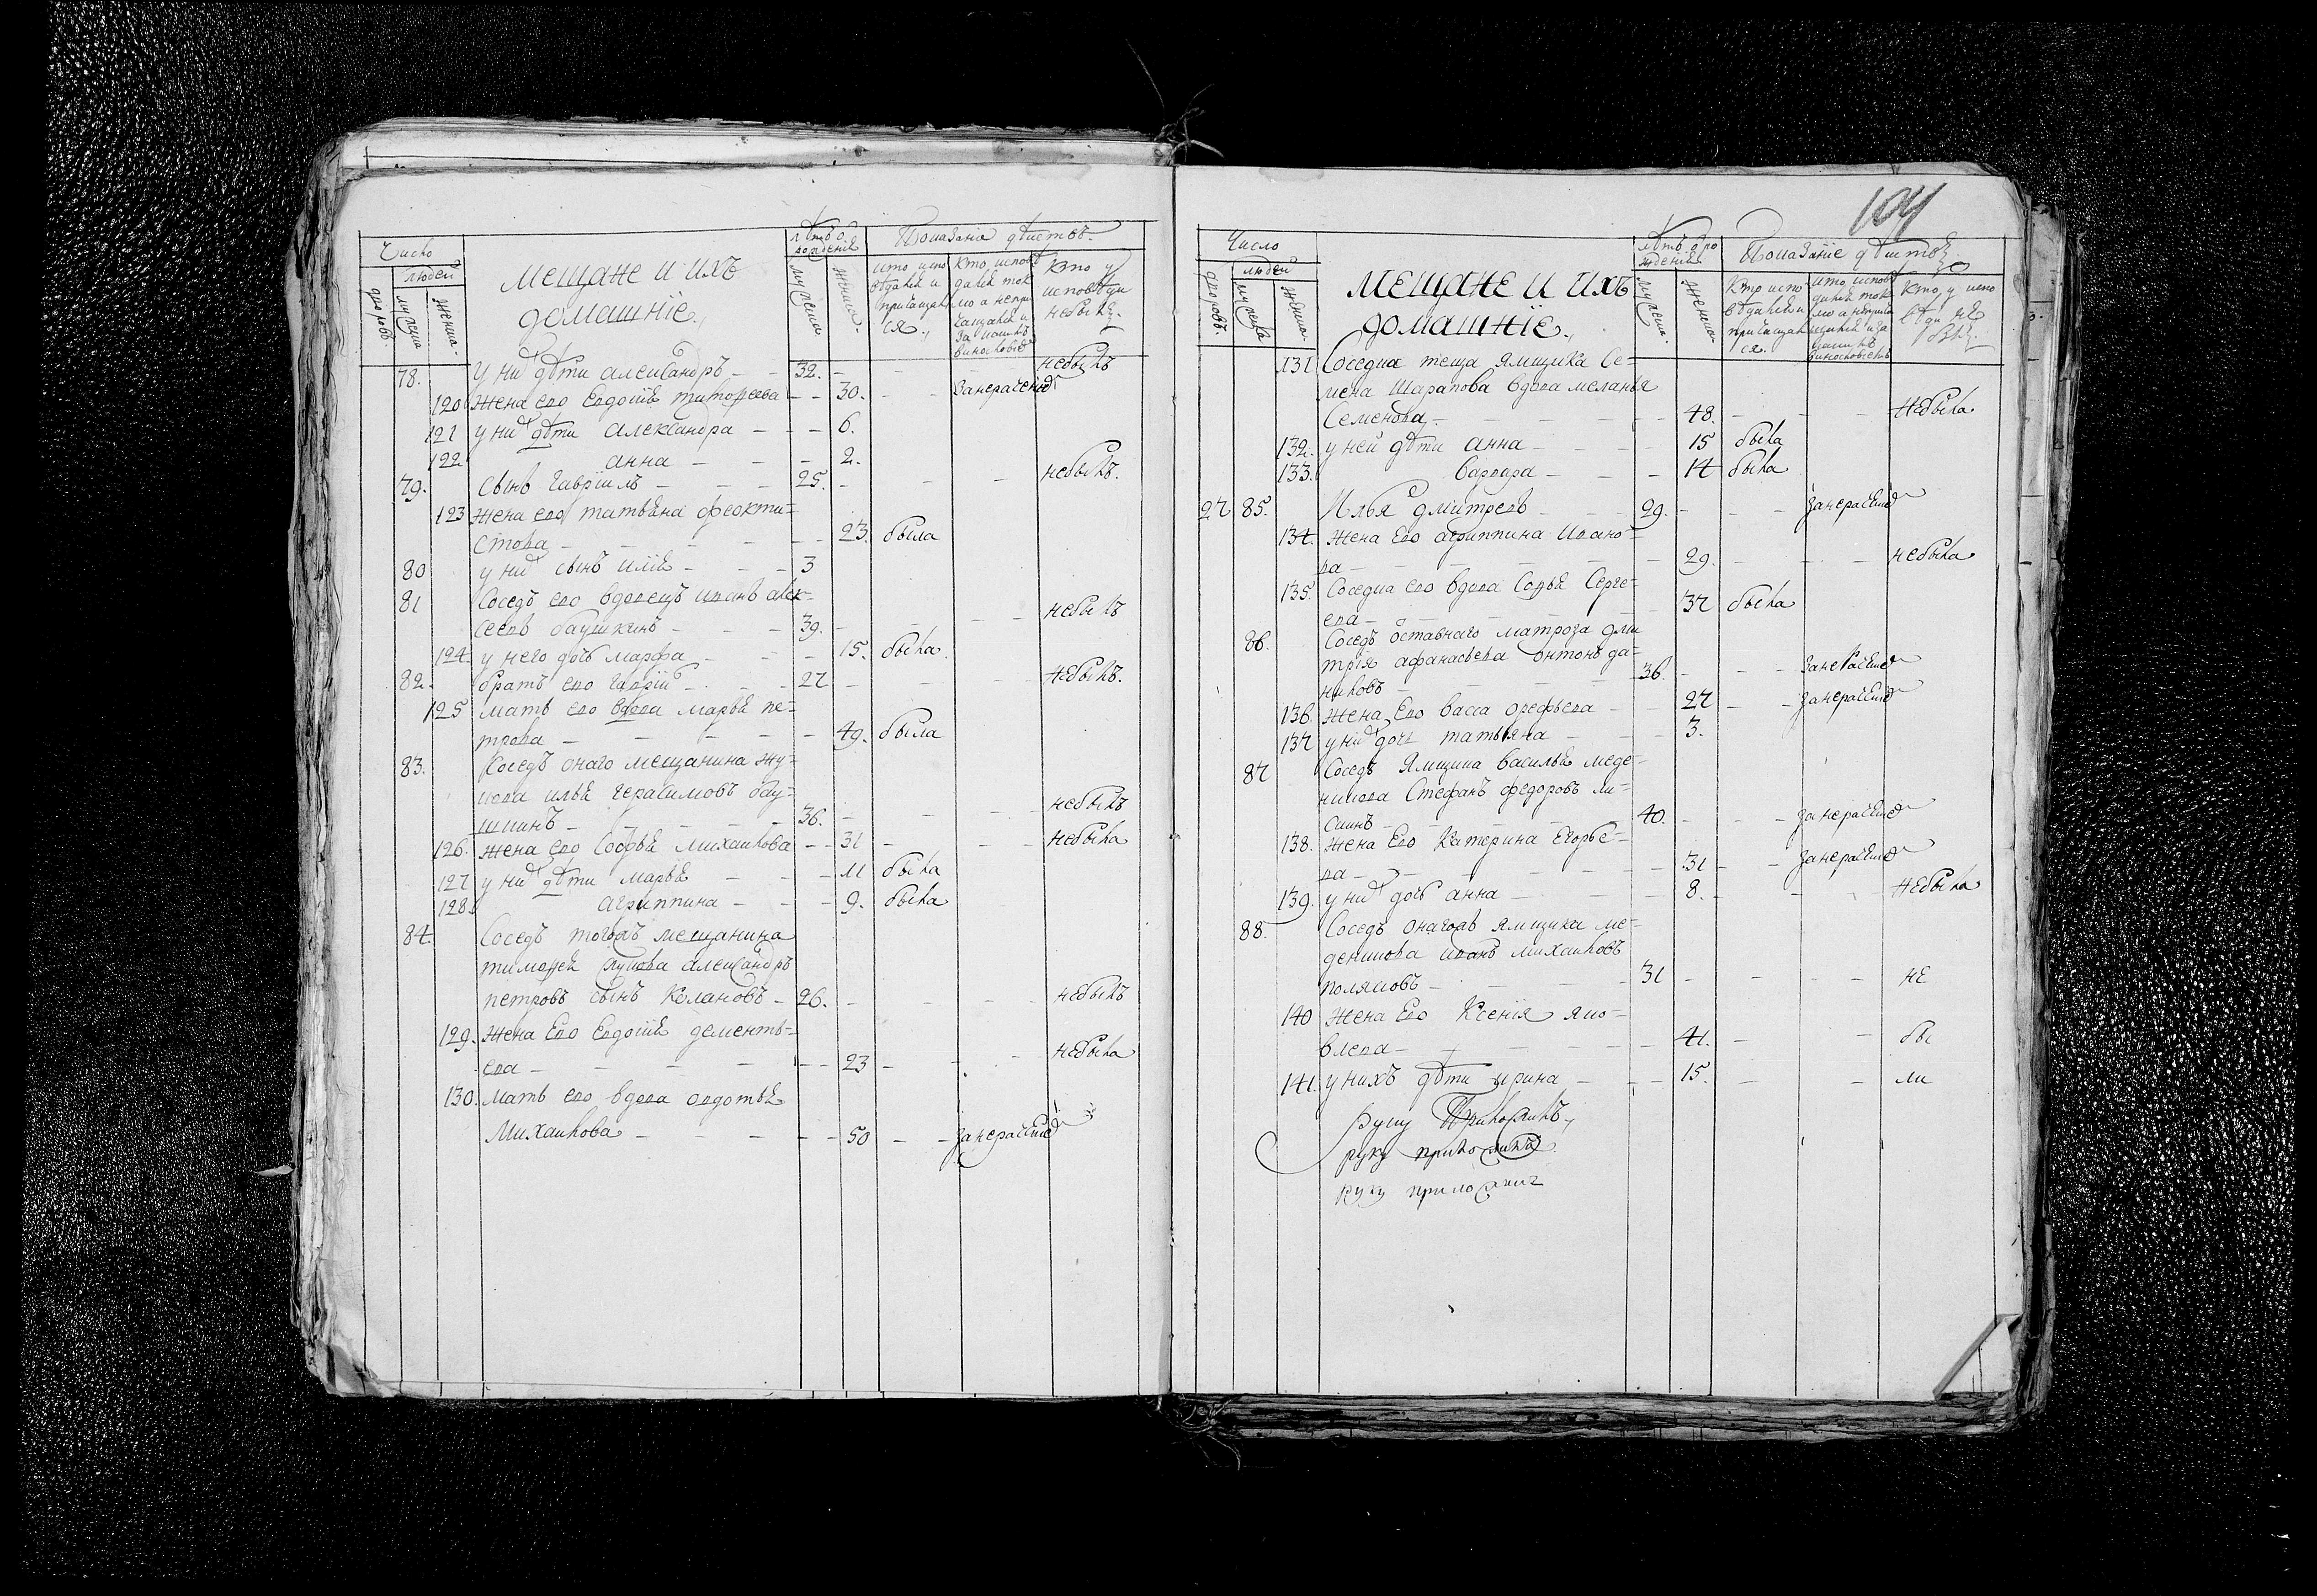 Число
людей
дворовъ.
мужеска
женска.
мещане и ихъ
домашніе.,
лѣтъ о
рожденія
мужеска
женска.
Показаніе дѣйствъ.
кто испо
вѣдался и
причащал
ся.,
Кто исповѣ
дался ток
мо а непри
чащался и
за какимъ
винословіе
Кто у
исповѣди
небылъ.
78. У них дѣти александръ — 32. — — — небылъ
120 Жена его Евдокія тимофеева — — 30. — Занерачениѣ
121 у них дѣти александра — — — 6.
122 анна — — — 2.
79. сынъ гавріилъ — — — 25. — — — небылъ.
123 Жена его татьяна феокти=
стова — — — — — 23. была
80 у них сынъ илія — — — 3
81 Соседъ его вдовецъ иванъ алек=
сеевъ баушкинъ — — — 39. — — — небылъ
124. у него дочь марфа — — — 15. была.
82. братъ его гавріилъ — — — 27 — — — небылъ.
125 мать его вдова марья пе=
трова — — — — — 49. была
83. Соседъ онаго мещанина жу=
кова илья герасимовъ бау=
шкинъ — — — — 36. — — — небылъ
126. жена его Софья михаилова — — 31 — — — небыла
127 у них дѣти марья — — — 11 была
128. агриппина — — — 9. была
84. Соседъ тогожъ мещанина
тимофея жукова александръ
петровъ сынъ — 26. — — — небылъ
129. Жена Его Евдокія дементь=
ева — — — — — 23 — — — небыла
130. мать его вдова авдотья
Михаилова — — — — — 50 — — занерачениѣ
104
Число
людей
дворовъ.
мужеска
женска.
мещане и ихъ
домашніе.,
лѣтъ о ро
жденія
мужеска
женска.
Показаніе дѣйствъ
Кто испо
вѣдался и
причащал
ся.
кто исповѣ
дался ток
мо а неприча
щался и за
какимъ
винословіемъ
Кто у испо
вѣди не
былъ.
131 Соседка теща ямщика Се=
мена Шарапова вдова меланья
Семенова — — — — — 48. — — — Небыла.
132. у ней дѣти анна — — — 15 была
133. варвара — — — 14 была
27 85. Илья дмитревъ — — — 29. — — — занерачениѣ
134. жена Его агриппина Ивано=
ва — — — — — 29. — — — небыла
135. Соседка его вдова Софья Серге=
ева — — — — — 37 была
86. Соседъ отставнаго матроза дми
трія афанасьева антонъ да=
ниловъ — — — — 36. — — — Занерачениѣ
136. жена Его васса арефьева — — 27 — — занерачениѣ
137 у них дочь татьяна — — — 3.
87 Соседъ Ямщика василья меде=
никова Стефанъ федоровъ ли=
синъ — — — — 40. — — — занерачениѣ
138. Жена Его Катерина Егорье=
ва — — — — — 31 — — занерачениѣ
139. у них дочь анна — — — 8. — — — Небыла
88. Соседъ онагожъ ямщика ме=
деникова иванъ михаиловъ
поляковъ — — — — 31 — — — не
140 жена Его Ксенія яко=
влева — — — — — 41. — — — бы
141. у нихъ дѣти ирина — — 15. — — — ли
руку Приложилъ,
руку приложилъ.
руку приложилъ